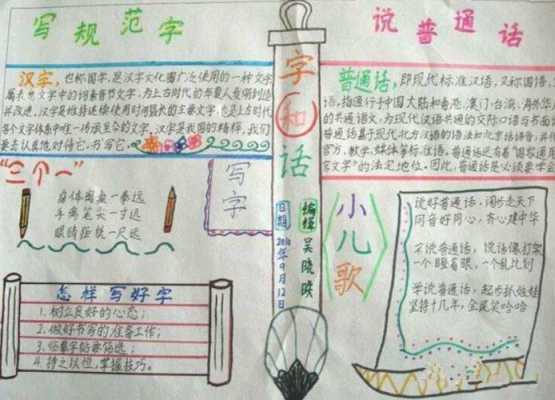 写规范字
汉字，也称国字，是汉字文化圈广泛使用的一种文字
属表意文字中的词素音节文字，为上古时代的华夏人发明创造
并改进，汉字是维持连续使用时间最长的主要文字，也是上古时代
各个文字体系中唯一传承至今的文字，汉字是我国的精粹，我们
要去认真地对待它，书写它。
"三个一"
身体离桌一拳远
手离笔尖一寸远
眼睛距纸一尺远
写字
怎样写好字
1、树立良好的心态；
2、做好书写的准备工作；
3、临摹字帖要筛选；
4、持之以恒，掌握技巧。
字和话
日期
2016年9月12日
编辑
吴晓映
说普通话
普通话，即现代标准汉语，又称国语，
语，指通行于中国大陆和香港、澳门、台湾、海外华
的共通语文，为现代汉语共通的交际口语与书面
普通话基于现代北方汉语的语法和北京话语音，
官方、教学、媒体等标准语。普通话还有着"国家通用
言文字"的法定地位。因此，普通话是必须要学
小儿歌
说好普通话，阔步走天下
同音好同心，齐心建中华
不说普通话，说话像打架
一个瞪着眼，一个乱比划
学说普通话，起步抓娃娃
坚持十几年，全民笑哈哈